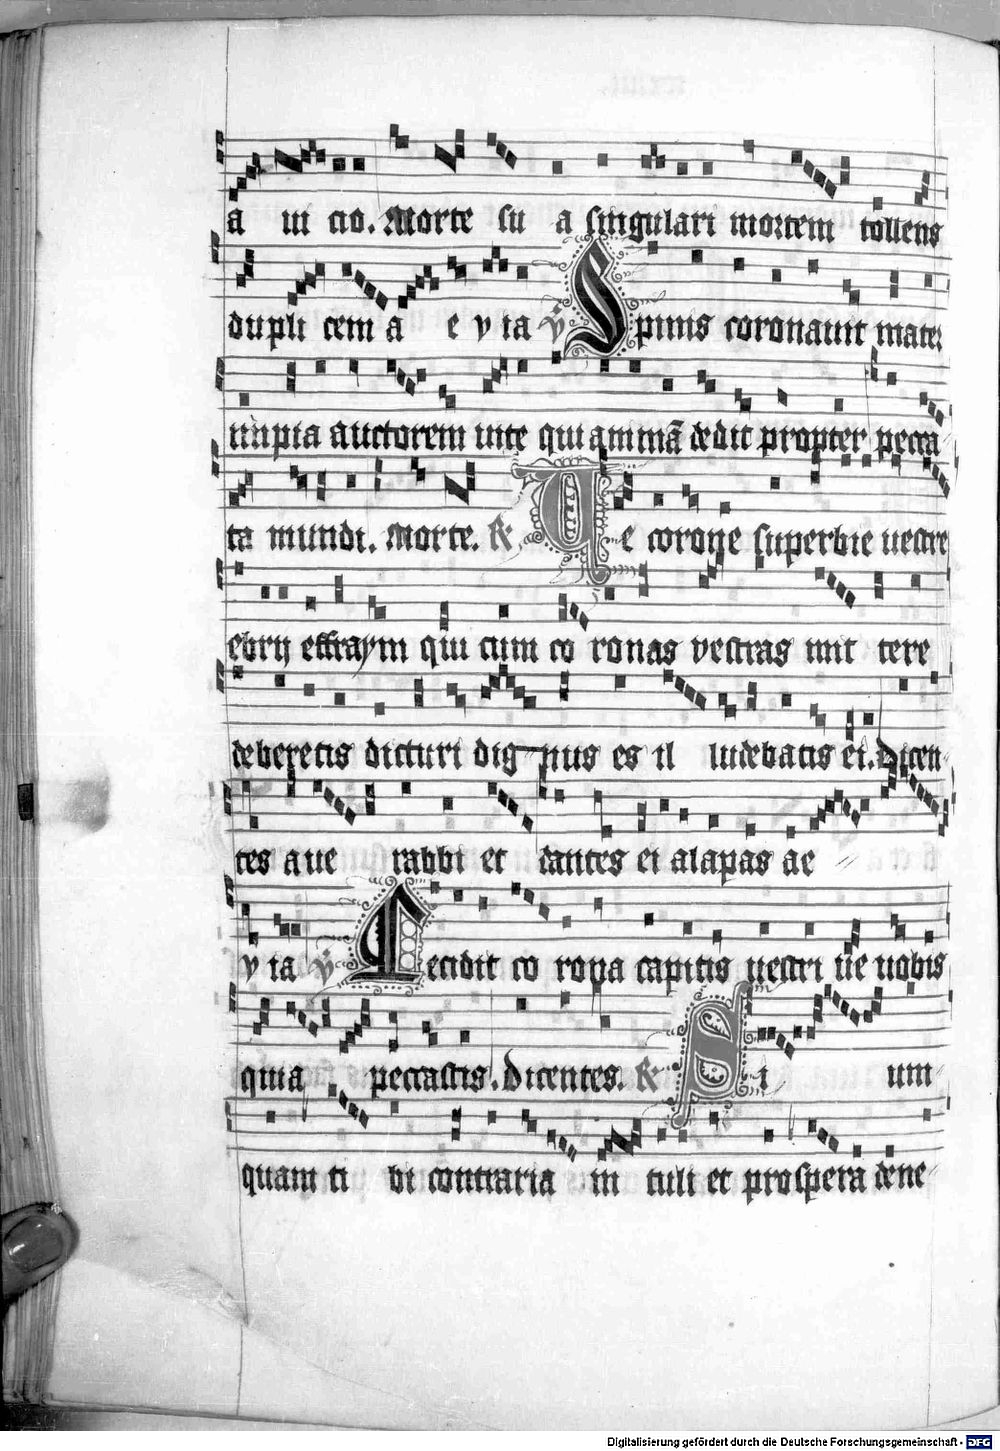 a ui cio. Morte su a singulari mortem tollens
dupli cem a e v ia ṽ Spinis coronauit mater
impia auctorem uite qui animā dedit propter pecca
ta mundi. Morte. R Ve corone superbie uestre
ebrij effraym qui cum co ronas vestras mit tere
deberetis dicturi dig nus es il ludebatis ei. Dicen
tes aue rabbi et dantes ei alapas ae
v ia ṽ Cecidit co rona capitis uestri ue uobis
quia peccastis. Dicentes. R Si um
quam ti bi contraria in tuli et prospera dene
Digitalisierung gefördert durch die Deutsche Forschungsgemeinschaft - DFG